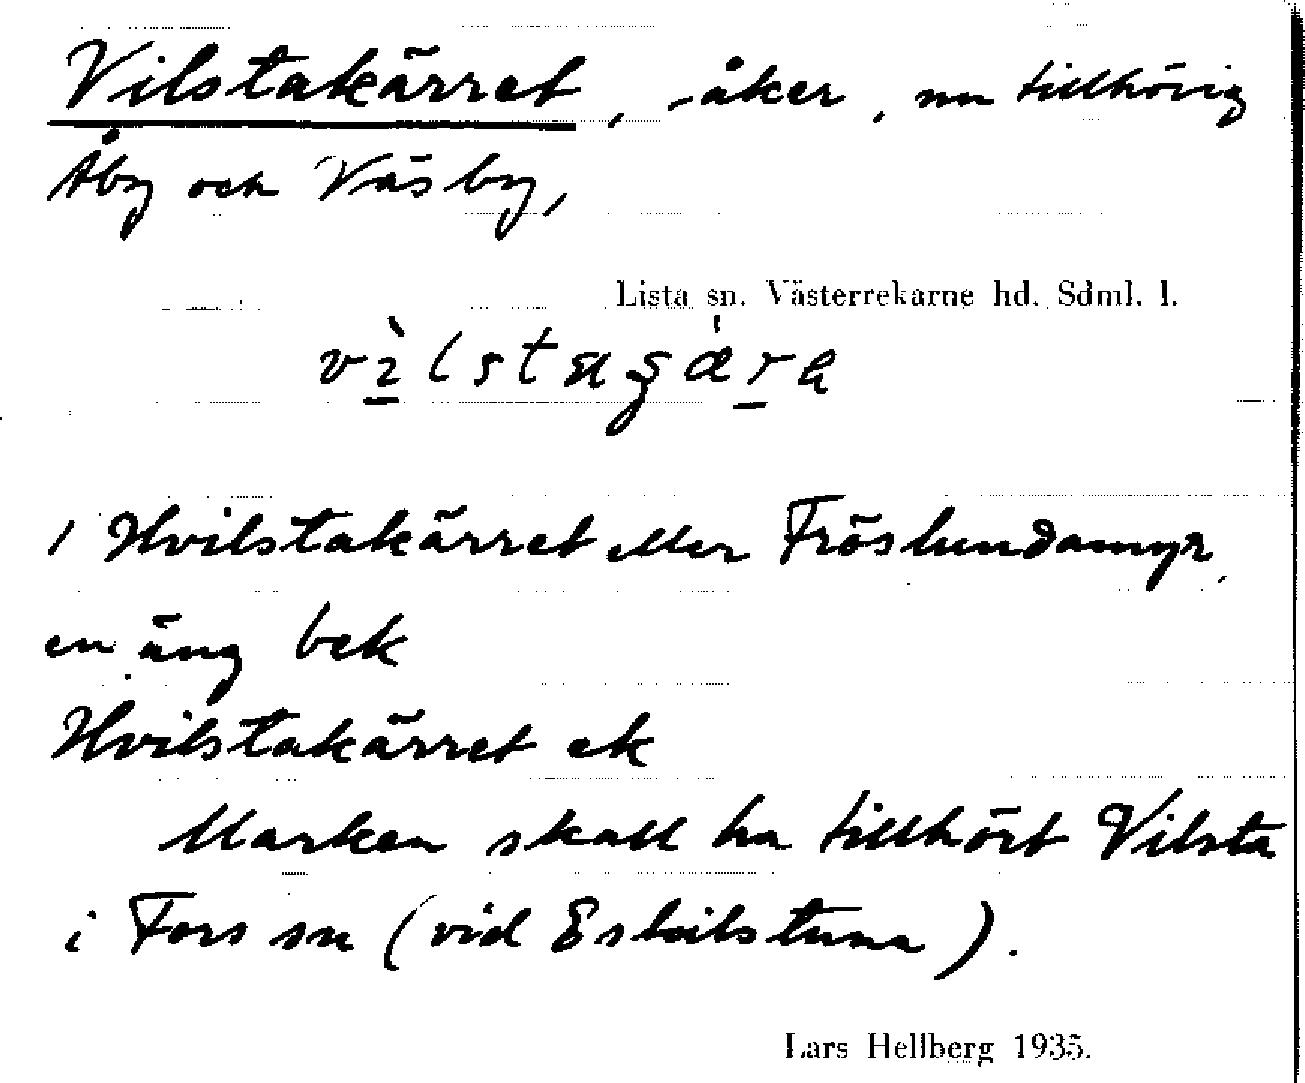 Vilstakärret, åker, nu tillhörig
Åby och Väsby,
Lista sn. Västerrekarne hd. Sdml. l.
Hvilstakärret eller Fröslundamyr,
en äng bek
Hvilstakärret ek
Marken skall ha tillhört Vilsta
i Fors sn (vid Eskilstuna).
Lars Hellberg 1935.